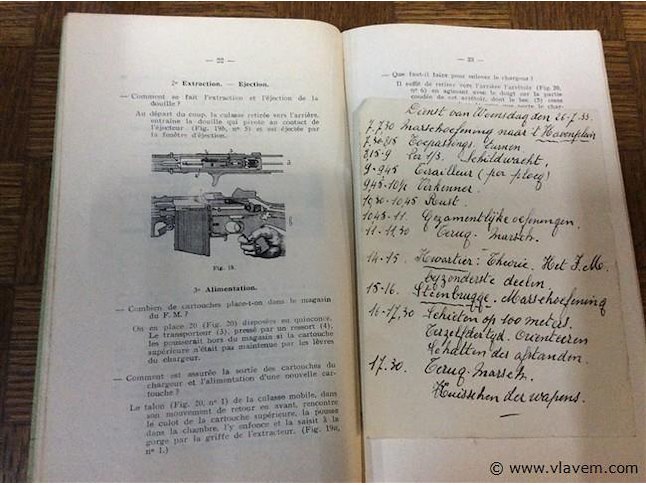 — 22 —
2° Extraction. — Ejection.
— Comment se fait l'extraction et l'éjection de la
douille ?
Au départ du coup, la culasse retirée vers l'arrière,
entraîne la douille qui pivote au contact de
l'éjecteur (Fig. 19b, n° 3) et est éjectée par
la fenêtre d'éjection.
a
g
Fig. 19.
3° Alimentation.
— Combien de cartouches place-t-on dans le magasin
du F. M. ?
On en place 20 (Fig. 20) disposées en quinconce.
Le transporteur (3), pressé par un ressort (4),
les pousserait hors du magasin si la cartouche
supérieure n'était pas maintenue par les lèvres
du chargeur.
— Comment est assurée la sortie des cartouches du
chargeur et l'alimentation d'une nouvelle car-
touche ?
Le talon (Fig. 20, n° 1) de la culasse mobile, dans
son mouvement de retour en avant, rencontre
le culot de la cartouche supérieure, la pousse
dans la chambre, l'y enfonce et la saisit à la
gorge par la griffe de l'extracteur. (Fig. 19a,
n° 1.)
— 23 —
— Que faut-il faire pour enlever le chargeur ?
Il suffit de retirer vers l'arrière l'arrêtoir (Fig. 20,
n° 6) en agissant avec le doigt sur la partie
coudée de cet arrêtoir, dont le bec (5) cesse
Dienst van Woensdag den 26-7.33.
7-7.30 Marschoefening naar 't Havenplein
7.30-8.15 Toepassings. turnen
8.15-9 Schildwacht.
9-9.45 Tirailleur (per ploeg)
9.45-10 Verkenner.
10.30-10.45 Rust.
10.45-11. Gezamentlijke oefeningen.
11-11.30 Terug-marsch.
14-15. Kwartier: Theorie. Het F.M.
bijzonderste deelen
15-16. Steenbrugge. Marschoefening
16-17.30 Schieten op 100 meters.
Terzelfdertyd. Orienteeren
Schatten der afstanden.
17.30. Terug-marsch.
Kuisschen der wapens.
© www.vlavem.com